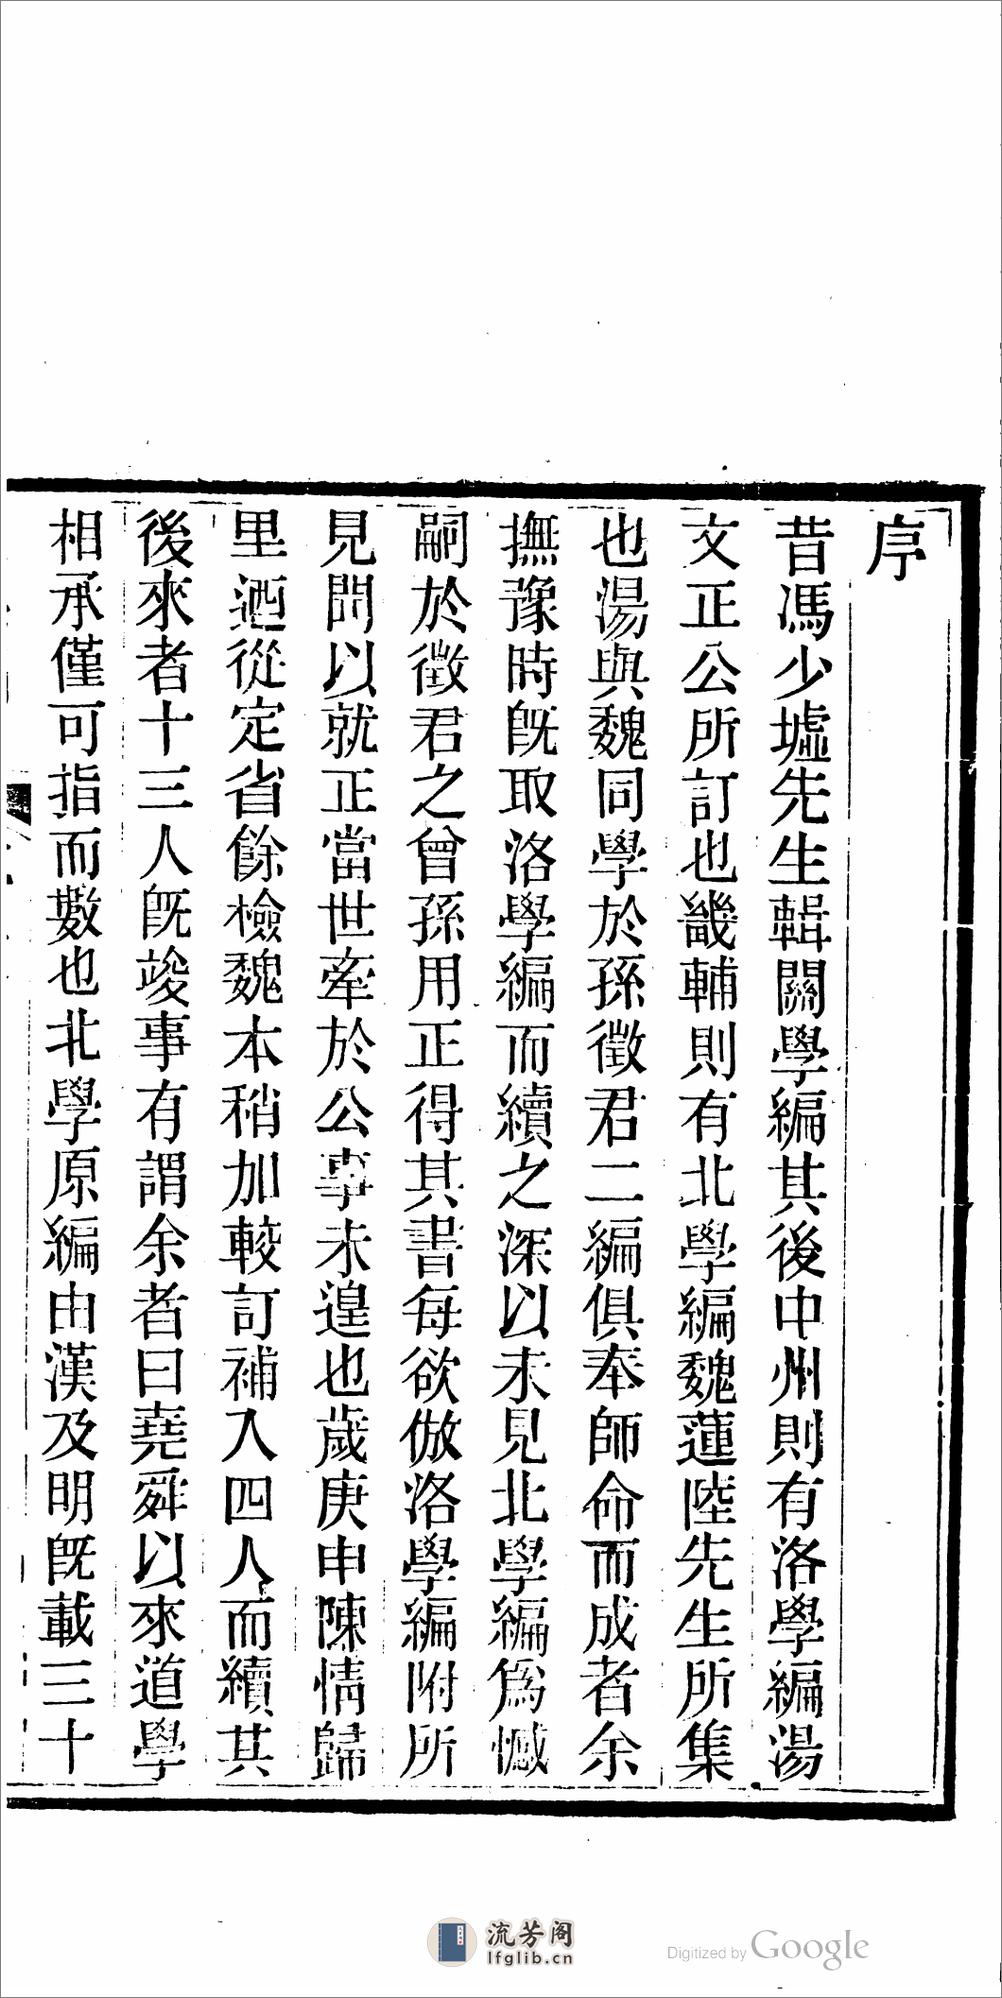 序
昔馮少墟先生輯關學編其後中州則有洛學編湯
文正公所訂也畿輔則有北學編魏蓮陸先生所集
也湯與魏同學於孫徵君二編俱奉師命而成者余
撫豫時旣取洛學編而續之深以未見北學編爲憾
嗣於徵君之曾孫用正得其書每欲倣洛學編附所
見問以就正當世牽於公事未遑也歲庚申陳情歸
里迺從定省餘檢魏本稍加較訂補入四人而續其
後來者十三人旣竣事有謂余者曰堯舜以來道學
相承僅可指而數也北學原編由漢及明旣載三十
流芳阁
lfglib.cn
Digitized by Google